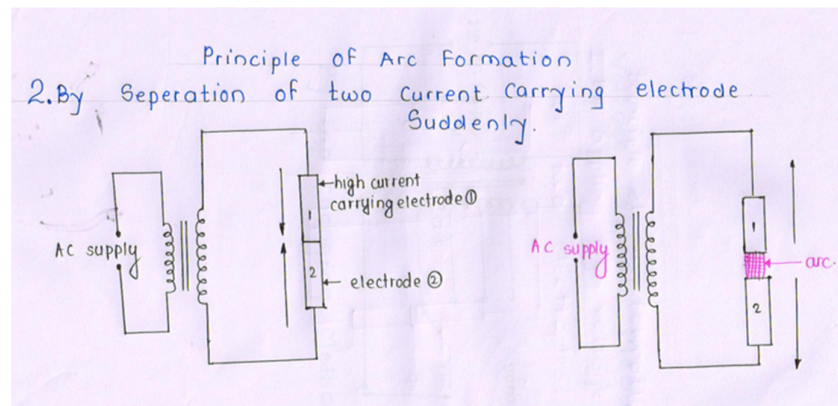 Principle of Arc Formation
2. By Seperation of two Current Carrying electrode
Suddenly.
AC supply
1
2
high current
carrying electrode ①
electrode ②
AC supply
1
2
arc.